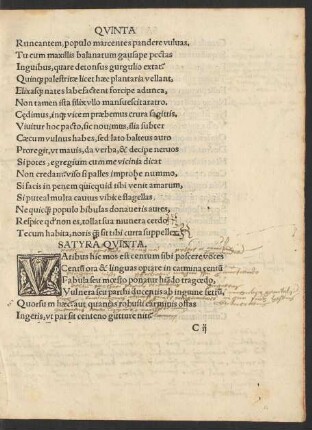 QVINTA
Runcantem, populo marcentes pandere vuluas,
Tu cum maxillis balanatum gausape pectas
Inguibus, quare detonsus gurgulio extat?
Quinq; palestritæ licet hæc plantaria vellant,
Elixasq; nates labefactent forcipe adunca,
Non tamen ista filix vllo mansuescit aratro.
Cędimus, inq; vicem præbemus crura sagittis,
Viuitur hoc pacto, sic nouimus, ilia subter
Cæcum vulnus habes, sed lato balteus auro
Protegit, vt mauis, da verba, & decipe neruos
Si potes, egregium cum me vicinia dicat
Non credam: viso si palles improbe nummo,
Si facis in penem quicquid tibi venit amarum,
Si puteal multa cautus vibice flagellas,
Nequicq; populo bibulas donaueris aures,
Respice qd' non es, tollat sua munera cerdo
Tecum habita, noris q̃ sit tibi curta suppellex
SATYRA QVINTA.
VAtibus hic mos est centum sibi poscere voces
Centũ ora & linguas optare in carmina centũ
Fabula seu mœsto ponatur hiãdo tragœdo,
Vulnera seu parthi ducentis ab inguine ferrũ,
Quorsum hæc? aut quantas robusti carminis offas
Ingeris, vt par sit centeno gutture niti?
C ij